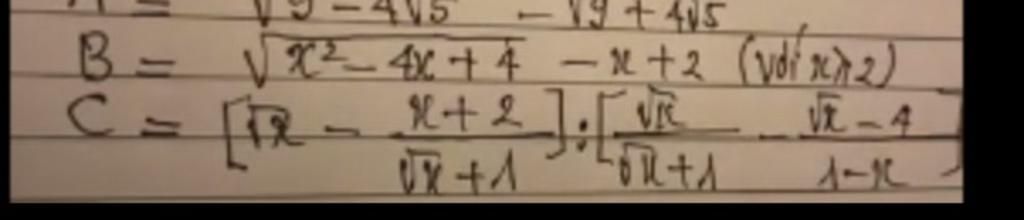 A = √9 - 4√5 - √9 + 4√5
B = √x² - 4x + 4 - x + 2 (Với x ≥ 2)
C = [√x - x + 2 / √x + 1] : [√x / √x + 1 - √x - 4 / 1 - x]